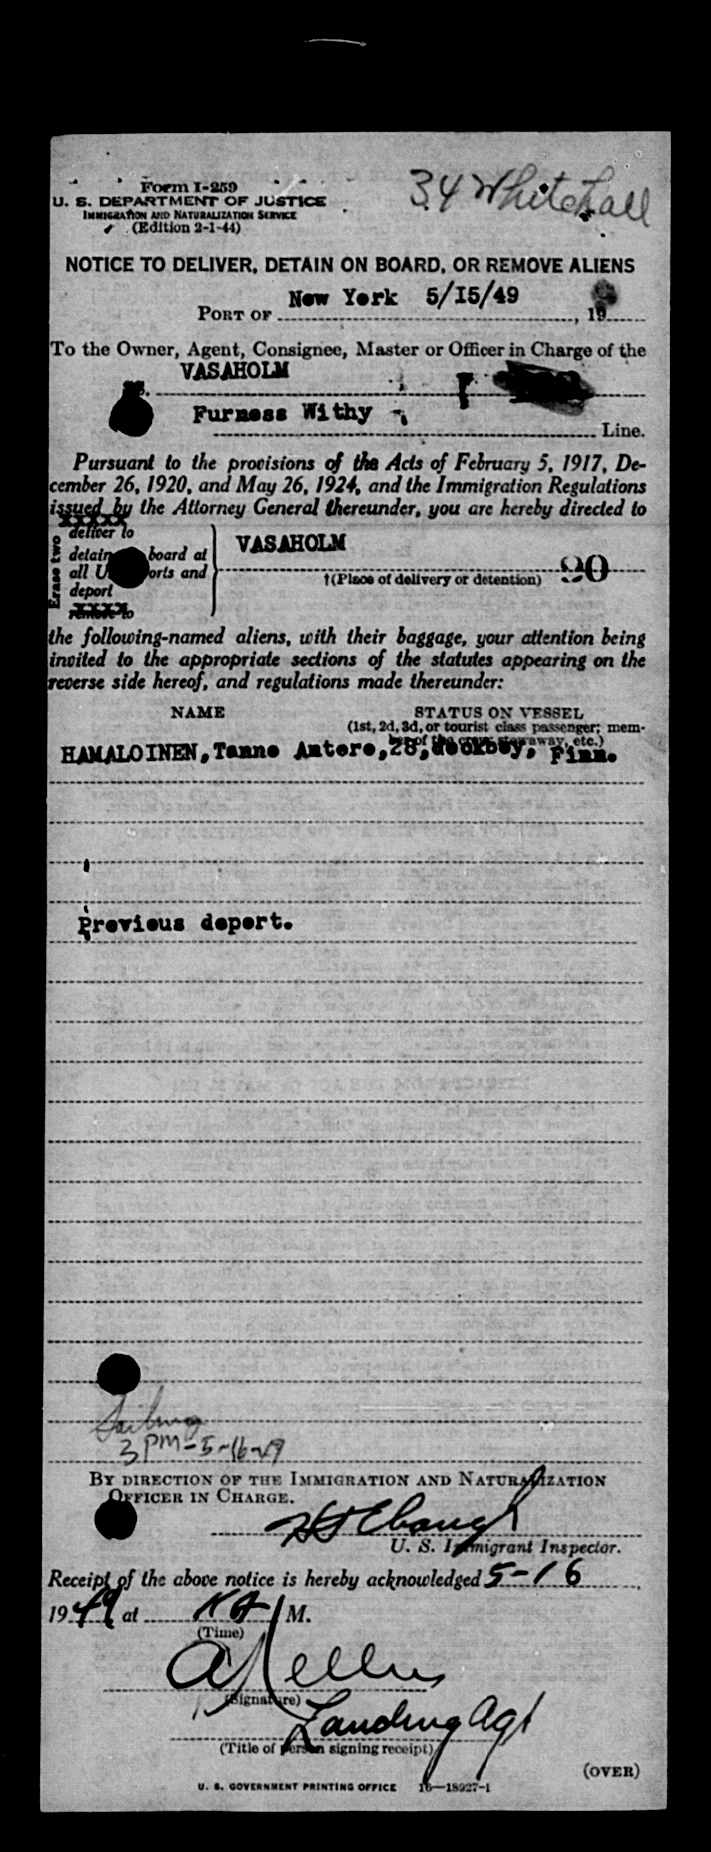 34 Whitehall
Form I-259
U. S. DEPARTMENT OF JUSTICE
IMMIGRATION AND NATURALIZATION SERVICE
(Edition 2-1-44)
NOTICE TO DELIVER, DETAIN ON BOARD, OR REMOVE ALIENS
PORT OF New York 5/15/49, 19
To the Owner, Agent, Consignee, Master or Officer in Charge of the
VASAHOLM
Furness Withy Line.
Pursuant to the provisions of the Acts of February 5, 1917, De-
cember 26, 1920, and May 26, 1924, and the Immigration Regulations
issued by the Attorney General thereunder, you are hereby directed to
Erase two
xxxxx
deliver to
detain board at
all U orts and
deport
xxxx
remove to
VASAHOLM
†(Place of delivery or detention) 90
the following-named aliens, with their baggage, your attention being
invited to the appropriate sections of the statutes appearing on the
reverse side hereof, and regulations made thereunder:
NAME STATUS ON VESSEL
(1st, 2d, 3d, or tourist class passenger; mem-
ber of the crew, stowaway, etc.)
HAMALOINEN, Tanno Antero, 28, deckboy, Finn.
Previous deport.
Sailing
3 PM - 5-16-49
BY DIRECTION OF THE IMMIGRATION AND NATURALIZATION
OFFICER IN CHARGE.
U. S. Immigrant Inspector.
Receipt of the above notice is hereby acknowledged 5-16,
19 49 at M.
(Time)
(Signature)
Landing Agt
(Title of person signing receipt)
(OVER)
U. S. GOVERNMENT PRINTING OFFICE 16—18927-1